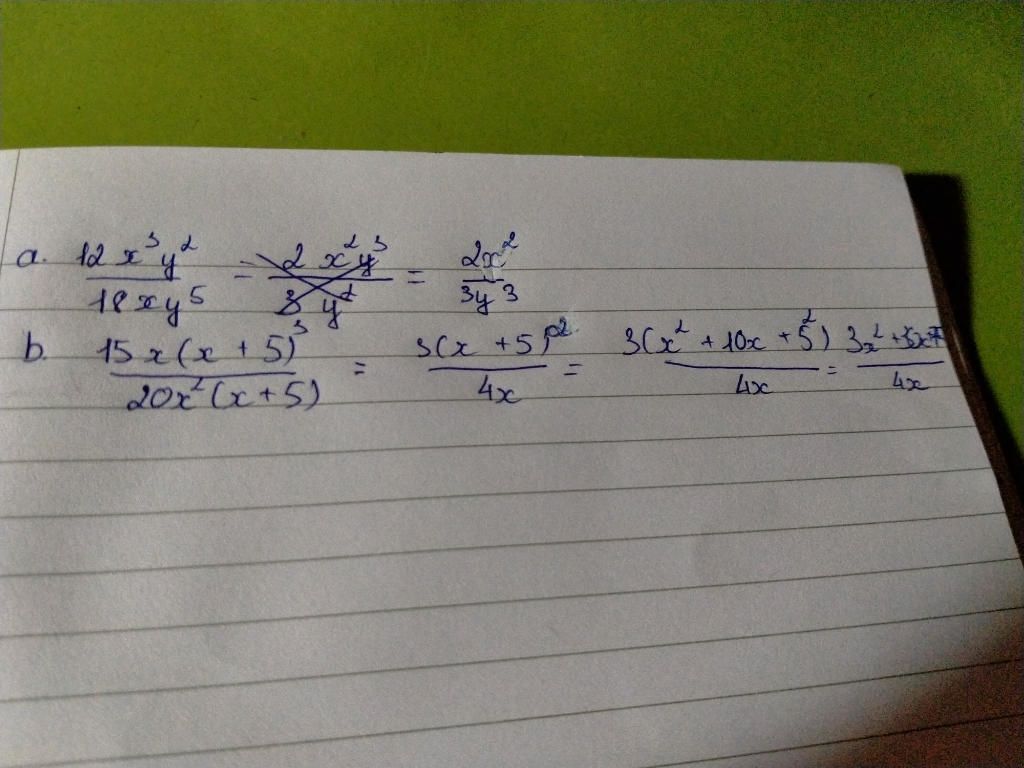 a. 12x³y²/18xy⁵ = 2x²y³/3y² = 2x²/3y³
b. 15x(x+5)³/20x²(x+5) = 3(x+5)²/4x = 3(x²+10x+5²)/4x = 3x²+/4x